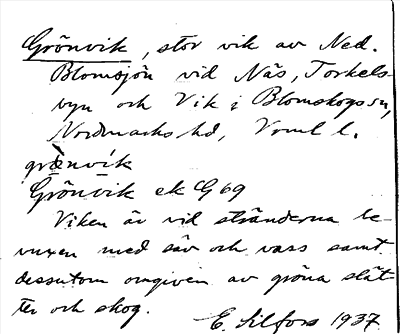 Grönvik, stor vik av Ned.
Blomsjön vid Näs, Torkels-
byn och Vik i Blomskogs sn,
Nordmarks hd, Vrml l.
grö̀nvík
Grönvik ek G 69
Viken är vid stränderna be-
vuxen med säv och vass samt
dessutom omgiven av gröna slät-
ter och skog.
E. Silfors 1937